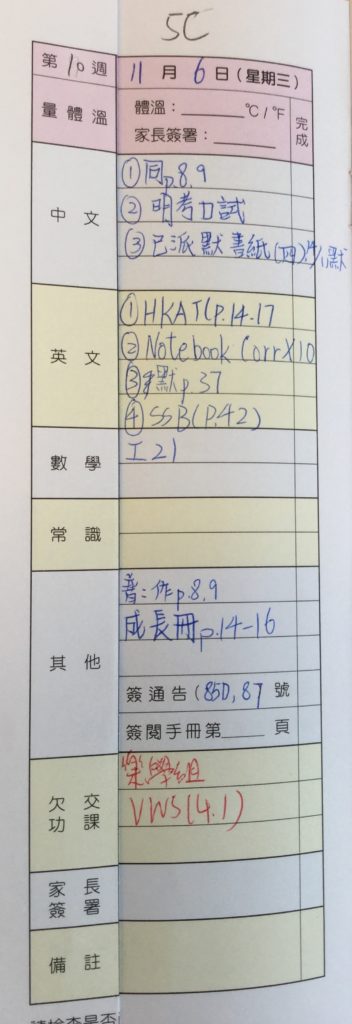 5C
第10週 11月6日(星期三)
量體溫 體溫：______°C/°F 完成
家長簽署：______
中文 ①同p.8.9
②明考口試
③已派默書紙(四)14/11默
英文 ①HKAT(P.14-17
②Notebook CorrX10
③默p.37
④SSB(P.42)
數學 工21
常識
普:作p.8.9
成長冊p.14-16
其他
簽通告(85D,87 號
簽閱手冊第____頁
樂學組
欠交功課 VWS(4.1)
家長簽署
備註